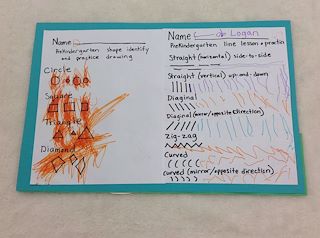 Name
PreKindergarten shape identify
and practice drawing
Circle
Square
Triangle
Diamond
Name Logan
PreKindergarten line lesson + practice
Straight (horizontal) side-to-side
Straight (vertical) up-and-down
Diaginal
Diaginal (mirror/opposite direction)
Zig-zag
Curved
Curved (mirror/opposite direction)